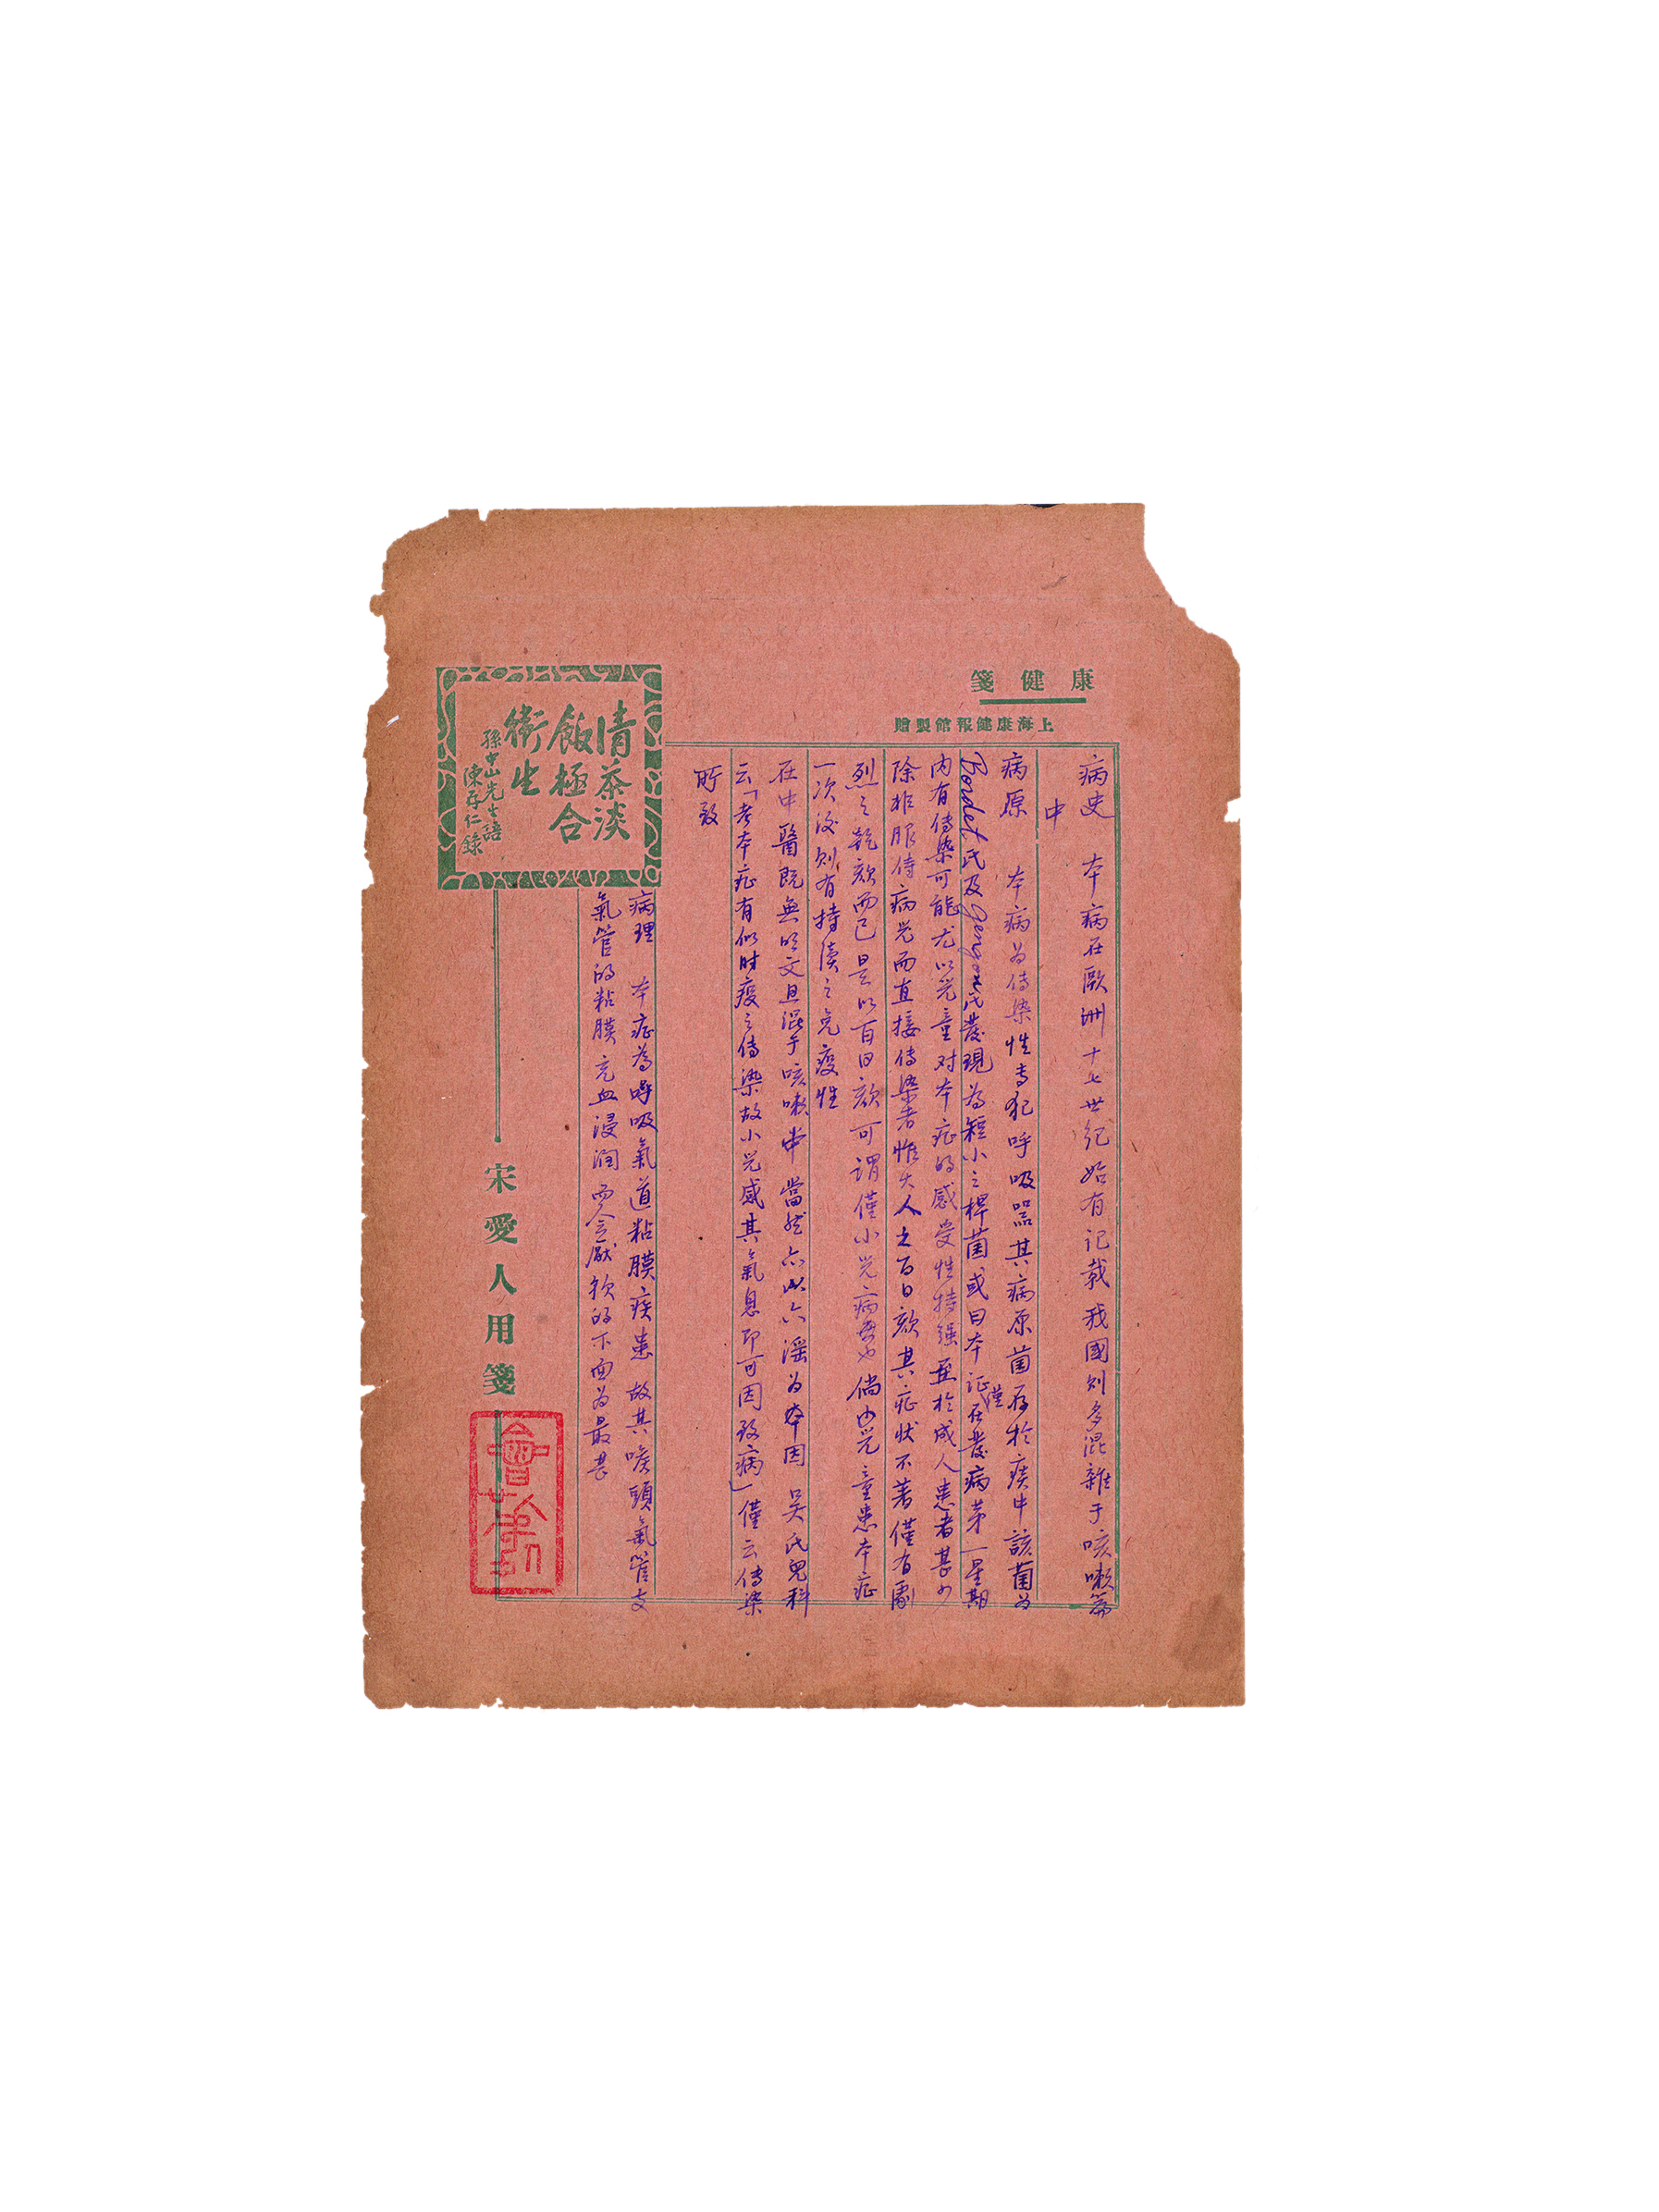 康健箋
上海康健報館製贈
病史 本病在歐洲十七世紀始有记载我國则多混雜于咳嗽篇
中
病原 本病为傳染性专犯呼吸器其病原菌存於痰中該菌为
Bordet氏及Gengou氏發現为短小之桿菌或曰本证僅在發病第一星期
内有傳染可能尤以児童对本症的感受性特强至於成人患者甚少
除非服侍病児而直接傳染者惟大人之百日欬其症状不著僅有劇
烈之乾欬而已是以百日欬可謂僅小児病也倘由児童患本症
一次後则有持续之免疫性
在中醫既無明文且混于咳嗽中當然亦以六淫为本因 吳氏兒科
云「考本症有似时疫之傳染故小児感其氣息即可因致病」僅云傳染
所致
病理 本症為呼吸氣道粘膜疾患 故其喉頭氣管支
氣管的粘膜充血浸润而会厭软的下面为最甚
清茶淡
飯極合
衛生
孫中山先生語
陳存仁錄
宋愛人用箋